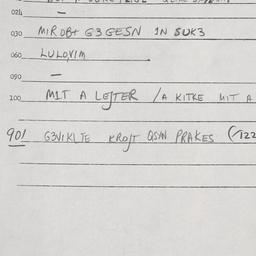 024 —
030 MIROBT G3GESN IN SUK3
060 LULOVIM
090 —
100 MIT A LEJTER / A KITKE MIT A
901 G3VIKLTE KROJT QSAN PRAKES (/122